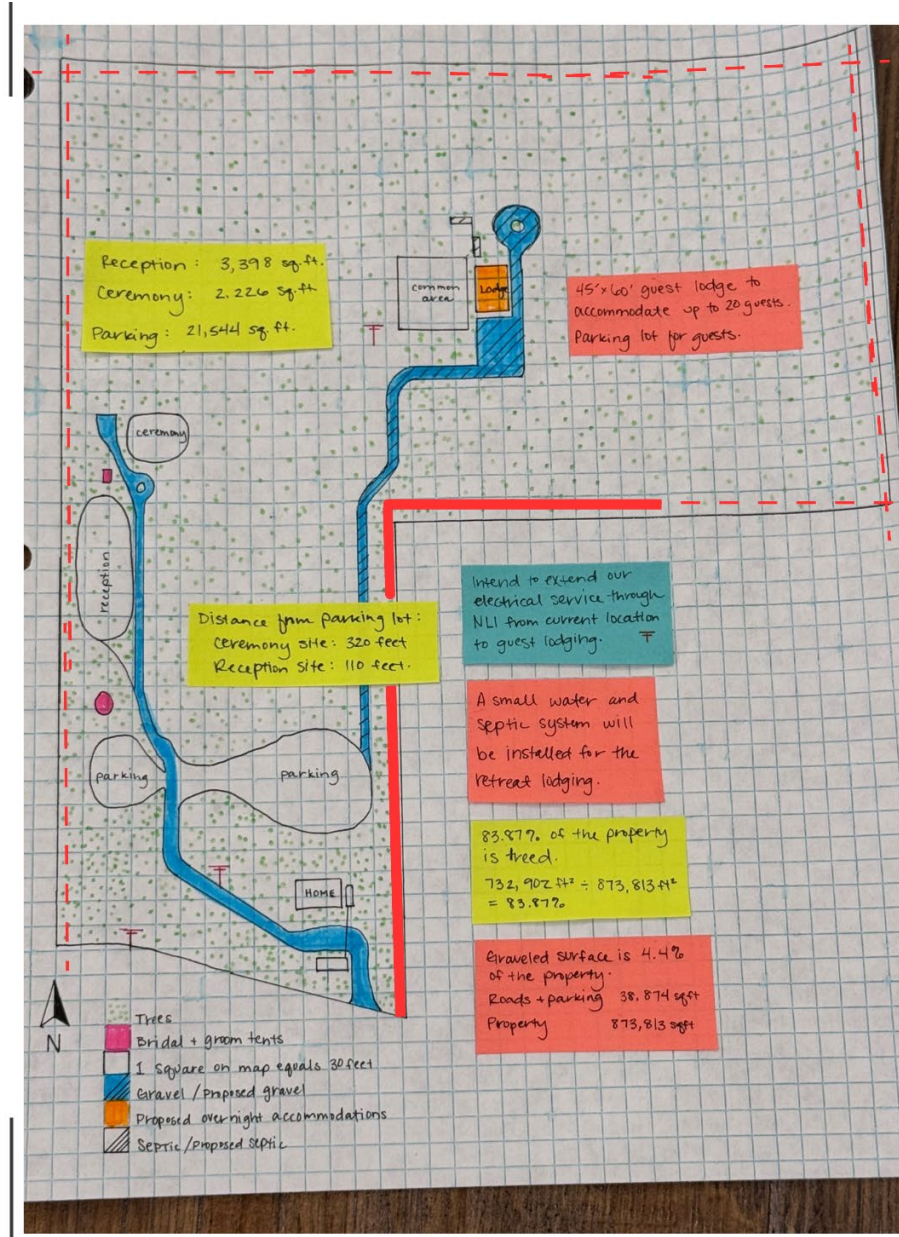 Reception: 3,398 sq.ft.
Ceremony: 2,226 sq.ft
Parking: 21,544 sq.ft.
common
area
Lodge
45'x60' guest lodge to
accommodate up to 20 guests.
Parking lot for guests.
ceremony
reception
Distance from parking lot:
Ceremony site: 320 feet
Reception site: 110 feet.
Intend to extend our
electrical service through
NLI from current location
to guest lodging.
A small water and
septic system will
be installed for the
retreat lodging.
parking
parking
83.87% of the property
is treed.
732,902 ft² ÷ 873,813 ft²
= 83.87%
HOME
Graveled surface is 4.4%
of the property.
Roads + parking 38,874 sqft
Property 873,813 sqft
N
Trees
Bridal + groom tents
1 square on map equals 30 feet
Gravel / proposed gravel
Proposed overnight accommodations
Septic / proposed septic